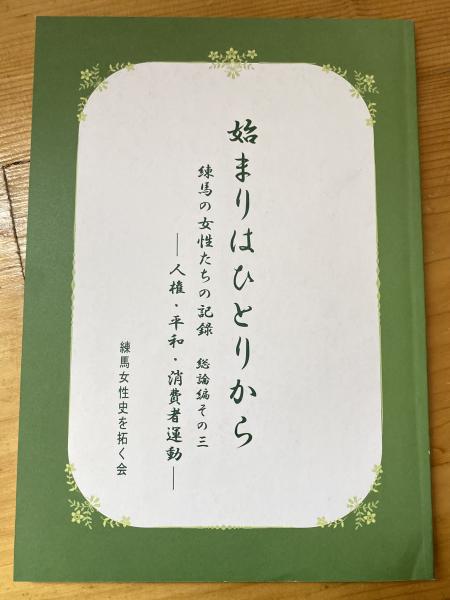 始まりはひとりから
練馬の女性たちの記録 総論編その三
―人権・平和・消費者運動―
練馬女性史を拓く会